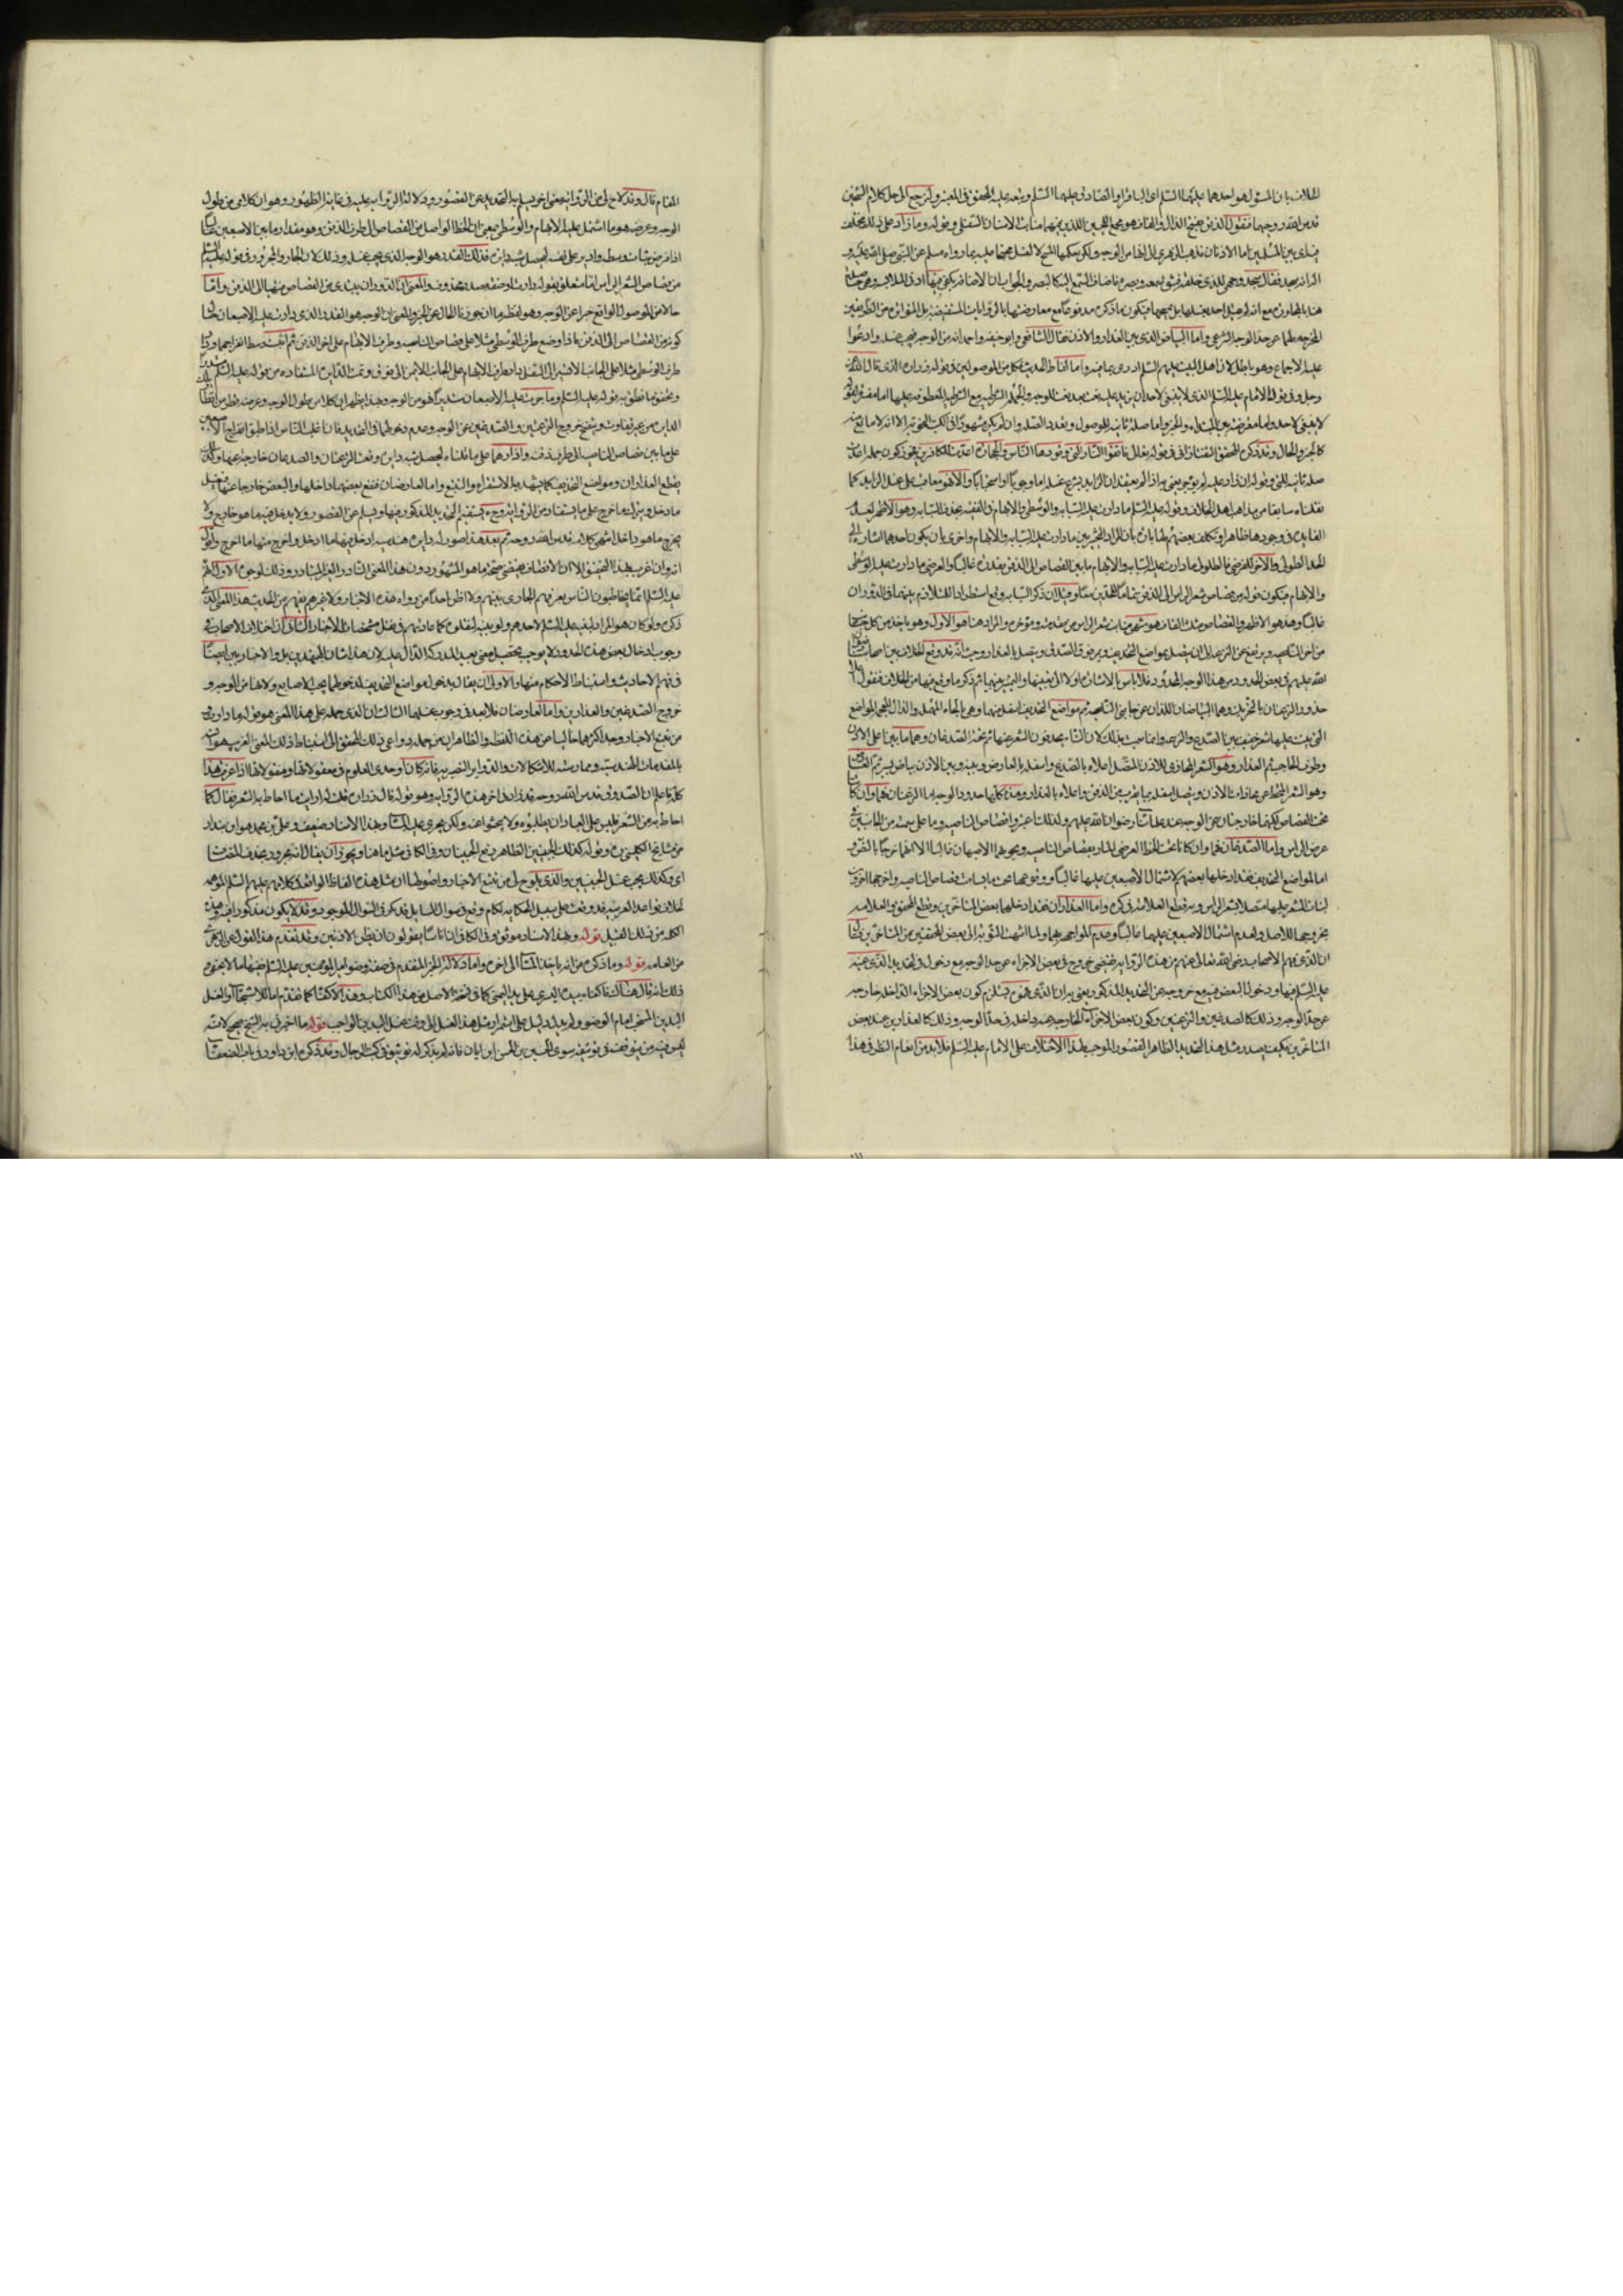 الخلاف بان المسئول هو احدهما عليهما السلام اى الباقر او الصادق عليهما السلام وتبعه عليه المحقق فى المعتبر ولنرجع الى حل كلام الشيخين
قدس الله روحهما فنقول الذقن بفتح الذال والقاف هو مجمع اللحيين اللذين فيهما منابت الاسنان السفلى وقوله وما زاد على ذلك
بين المسلمين اما الاذنان فذهب الزهرى الى انها من الوجه ولكن حكمها المسح لا الغسل محتجا عليه بما رواه مسلم عن النبى صلى الله عليه و
اله انه سجد فقال سجد وجهى للذى خلقه وشق سمعه وبصره فاضاف السمع اليه كالبصر والجواب ان الاضافة يكفى فيها ادنى الملابسة وهى
هنا المجاورة مع انه لم يقل احد بغسلها بل بمسحها فيكون ما ذكره مدفوعا مع معارضتها بالروايات المستفيضة بل المتواترة من الطريقين
المخرجة لهما عن حد الوجه الشرعى واما البياض الذى بين العذار والاذن فقال الشافعى وابو حنيفة واحمد انه من الوجه فيجب غسله وادعوا
عليه الاجماع وهو باطل لان اهل البيت عليهم السلام ادرى بما فيه واما الفاظ الحديث فكل من الموصولين فى قوله زرارة الذى قال الله عز
وجل وفى قول الامام عليه السلام الذى لا ينبغى لاحد ان يزيد عليه نعت بعد نعت للوجه والجملة الشرطية مع الشرطية المعطوفة عليها اما مفسرة لقوله
لا ينبغى لاحد واما معترضة بين المبتداء والخبر واما صلة ثانية للموصول وتعدد الصلة وان لم يكن مشهورا فى الكتب النحوية الا انه لا مانع منه
كالخبر والحال وقد ذكره المحقق التفتازانى فى قوله تعالى فاتقوا النار التى وقودها الناس والحجارة اعدت للكافرين فجوز كون جملة اعدت
صلة ثانية للتى وقوله ان زاد عليه لم يوجر يعنى به اذا لم يعتقد ان الزايد يشرع غسله اما وجوبا او استحبابا والا فهو معاقب على غسل الزايد كما
نقلناه سابقا من مذاهب اهل الخلاف وقوله عليه السلام ما دارت عليه السبابه والوسطى والابهام وفى الفقيه بحذف السبابه وهو الاظهر لعدم
الفايدة فى وجودها ظاهرا وتكلف بعضهم لها بان المراد التخيير بين ما دارت عليه السبابه والابهام واخرى بان يكون احدهما اشارة الى
الحد الطولى والاخر للعرضى فالطول ما دارت عليه السبابه والابهام ما بين القصاص الى الذقن بقدره غالبا والعرضى ما دارت عليه الوسطى
والابهام فيكون قوله من قصاص شعر الراس الى الذقن تماما للحدين معا وقيل ان ذكر السبابه وقع استطرادا للتلازم بينهما فى الدوران
غالبا وهذا هو الاظهر والقصاص مثلث القاف هو منتهى منابت شعر الراس من مقدمه ومؤخره والمراد هنا هو الاول وهو ياخذ من كل جانب
من اخر الناصيه ويرتفع عن النزعة الى ان يتصل بمواضع التحذيف ويمر فوق الصدغ ويتصل بالعذار وحيث انه قد وقع الخلاف بين اصحابنا رضوان
الله عليهم فى بعض الحدود من هذا الوجه المحدود فلا باس بالاشارة اولا الى تعيينها والتمييز بينها ثم ذكر ما وقع فيها من الخلاف فنقول اما
حدود النزعتان بالتحريك وهما البياضان اللذان عن جانبى الناصيه ثم مواضع التحذيف اسفل منهما وهى بالحاء المهملة والذال المعجمة المواضع
التى ينبت عليها شعر خفيف بين الصدغ والنزعه وانما سميت بذلك لان النساء يحذفون الشعر عنها ثم تحتها الصدغان وهما ما بين اعلى الاذن
وطرف الحاجب ثم العذار وهو الشعر المحاذى للاذن المتصل اعلاه بالصدغ واسفله بالعارض وبينه وبين الاذن بياض يسير ثم العارض
وهو الشعر المنحط عن محاذات الاذن ويتصل اسفله بما يقرب من الذقن واعلاه بالعذار وهذه كلها حدود الوجه اما النزعتان فهما وان كانا
تحت القصاص لكنهما خارجتان عن الوجه عند علمائنا رضوان الله عليهم ولذلك اعتبروا قصاص الناصيه وما على سمته من الجانبين فى
عرض الراس واما الصدغان فهما وان كانا تحت الخط العرضى المار بقصاص الناصيه ويحويهما الاصبعان غالبا الا انهما خرجا بالنص و
اما المواضع التحذيف فقد ادخلها بعضهم لاشتمال الاصبعين عليها غالبا ووقوعها تحت ما يسامت قصاص الناصيه واخرجها اخرون
لنبات الشعر عليها متصلا بشعر الراس وبه قطع العلامة فى كره واما العذاران فقد ادخلهما بعض المتاخرين وقطع المحقق والعلامة
بخروجهما للاصل ولعدم اشتمال الاصبعين عليهما غالبا وعدم المواجهه بهما ولما انتهت النوبة الى بعض المحققين من المتاخرين قال
ان الذى فهم الاصحاب رضى الله تعالى عنهم من هذه الرواية يقتضى خروج بعض الاجزاء عن حد الوجه مع دخوله فى التحديد الذى عينه
عليه السلام فيها ودخول البعض فيه مع خروجه عن التحديد المذكور يعنى به ان الذى فهموه يستلزم كون بعض الاجزاء الداخلة خارجه
عن حد الوجه وذلك كالصدغين والنزعتين وكون بعض الاجزاء الخارجه عنه داخلة فى حد الوجه وذلك كالعذارين عند بعض
المتاخرين فكيف يصدر مثل هذا التحديد الظاهر القصور الموجب لهذا الاختلاف على الامام عليه السلام فلا بد من انعام النظر فى هذا
المقام قال وقد لاح لى من الرواية معنى اخر يسلم به التحديد عن القصور ودلالة الرواية عليه فى غاية الظهور وهو ان كلا من طول
الوجه وعرضه هو ما اشتمل عليه الابهام والوسطى بمعنى ان الخط الواصل من القصاص الى طرف الذقن وهو مقدار ما بين الاصبعين غالبا
اذا فرض ثبات وسطه وادير على نفسه ليحصل شبه دايرة فذلك القدر هو الوجه الذى يجب غسله وذلك لان الجار والمجرور فى قوله عليه السلام
من قصاص الشعر الراس اما متعلق بقوله دارت او صفة مصدر محذوف والمعنى ان الدوران يبتدى من القصاص منتهيا الى الذقن واما
حالا من الموصول الواقع خبرا عن الوجه وهو لفظ ما ان جوزنا الحال عن الخبر والمعنى ان الوجه هو القدر الذى دارت عليه الاصبعان حال
كونه من القصاص الى الذقن فاذا وضع طرف الوسطى مثلا على قصاص الناصيه وطرف الابهام على اخر الذقن ثم اثبت وسط انفراجهما ودار
طرف الوسطى مثلا على الجانب الايسر الى اسفل ودار طرف الابهام على الجانب الايمن الى فوق تمت الدايرة المستفادة من قوله عليه السلام مستديرا
وتحقق ما نطق به قوله عليه السلام وما جرت عليه الاصبعان مستديرا فهو من الوجه وبهذا يظهر ان كلا من طول الوجه وعرضه قطر من اقطار تلك
الدايرة من غير تفاوت ويتضح خروج النزعتين والصدغين عن الوجه وعدم دخولهما فى التحديد فان اغلب الناس اذا طبق انفراج الاصبعين
على ما بين قصاص الناصيه الى طرف ذقنه وادارهما على ما قلناه ليحصل شبه دايرة وقعت النزعتان والصدغان خارجة عنهما وكذلك
يقطع العذاران ومواضع التحذيف كما يشهد به الاستقراء والتتبع واما العارضان فيقع بعضهما داخلها والبعض خارجا عنها فيغسل
ما دخل ويترك ما خرج على ما يستفاد من الرواية وح يستقيم التحديد المذكور فيها ويسلم عن القصور ولا يدخل فيه ما هو خارج ولا
يخرج ما هو داخل انتهى كلامه قدس الله روحه ثم بعد هذا صور له دايرة هندسيه ادخل فيها ما ادخل واخرج منها ما اخرج واقول
انه وان اغرب بهذا التحقيق الا ان الانصاف يقتضى صحة ما هو المشهور دون هذا المعنى النادر الغير المتبادر وذلك لوجوه الاول انهم
عليهم السلام انما يخاطبون الناس بعرفهم الجارى بينهم ولا اظن احدا من رواة هذه الاخبار ولا غيرهم يفهم من الحديث هذا المعنى الذى
ذكره ولو كان هو المراد لبينه عليه السلام لاحدهم ولو بينه لنقلوه كما عادتهم فى نقل مشخصات الاخبار الثانى ان اختلاف الاصحاب فى
وجوب ادخال بعض هذه الحدود لا يوجب تحصيل معنى بعيد للمدرك الدال عليه لان هذا شان المجتهدين بل والاخباريين ايضا
فى فهم الاحاديث واستنباط الاحكام منها والاولى ان يقال بدخول مواضع التحذيف لدخولها تحت الاصابع ولانها من الوجه و
خروج الصدغين والعذارين واما العارضان فلا بعد فى وجوب غسلهما الثالث ان الذى حمله على هذا المعنى هو قوله ما دارت و
من تتبع الاخبار وجد اكثرها خاليا من هذه اللفظة والظاهر ان من جملة دواعى ذلك المحقق الى استنباط ذلك المعنى الغريب هو انسه
بالمقدمات الهندسية وممارسته للاشكالات والدواير النصيرية فانه كان اوحدى العلوم فى معقولاتها ومنقولاتها اذا عرفت هذا
كله فاعلم ان الصدوق قدس الله روحه قد زاد فى اخر هذه الرواية وهو قوله قال زرارة قلت له ارايت ما احاط به الشعر فقال كلما
احاط به من الشعر فليس على العباد ان يطلبوه ولا يبحثوا عنه ولكن يجرى عليه الماء وهذا الاسناد ضعيف وعلى بن محمد هو ابن بندار
من مشايخ الكلينى ره وقوله كذلك الجبينين الظاهر رفع الجبينان وفى الكافى مثل ما هنا ويجوز ان يقال انه مجرور بحذف المضاف
اى وكذلك يجب غسل الجبينين والذى يلوح لى من تتبع الاخبار واصولها ان مثل هذه الفاظ الواقعة فى كلامهم عليهم السلام الموهمه
لخلاف قواعد العربيه قد وقعت على سبيل الحكاية لكلام وقع فى سوال السايل قد يكر فى السوال الموجود وقد لا يكون مذكورا فيه وهذه
الكلمه من ذلك القبيل قوله وبهذا الاسناد موثق وفى الكافى ان اناسا يقولون ان بطن الاذنين وقد تقدم هذا القول عن الزهرى
من العامه قوله وما ذكره من انه ياخذ الماء الى اخره واما دلالة الخبر المتقدم فى صفة وضوء امير المؤمنين عليه السلام ففيها ما لا يخفى و
ذلك انه قال هناك فاكفاه بيده اليسرى على يده اليمنى كما فى نسخ الاصل من هذا الكتاب وهذا الاكفاء كما تقدم اما للاستنجاء او الغسل
اليدين المستحب امام الوضوء ولم يدل دليل على استمرار مثل هذا الغسل الى وقت غسل اليدين الواجب قوله ما اخبرنى به الشيخ صحيح لانه
ليس فيه من يتوقف فى توثيقه سوى الحسين بن الحسن ابن ابان فانه لم يذكر له توثيق فى كتب الرجال وقد ذكره ابن داود فى باب الضعفاء